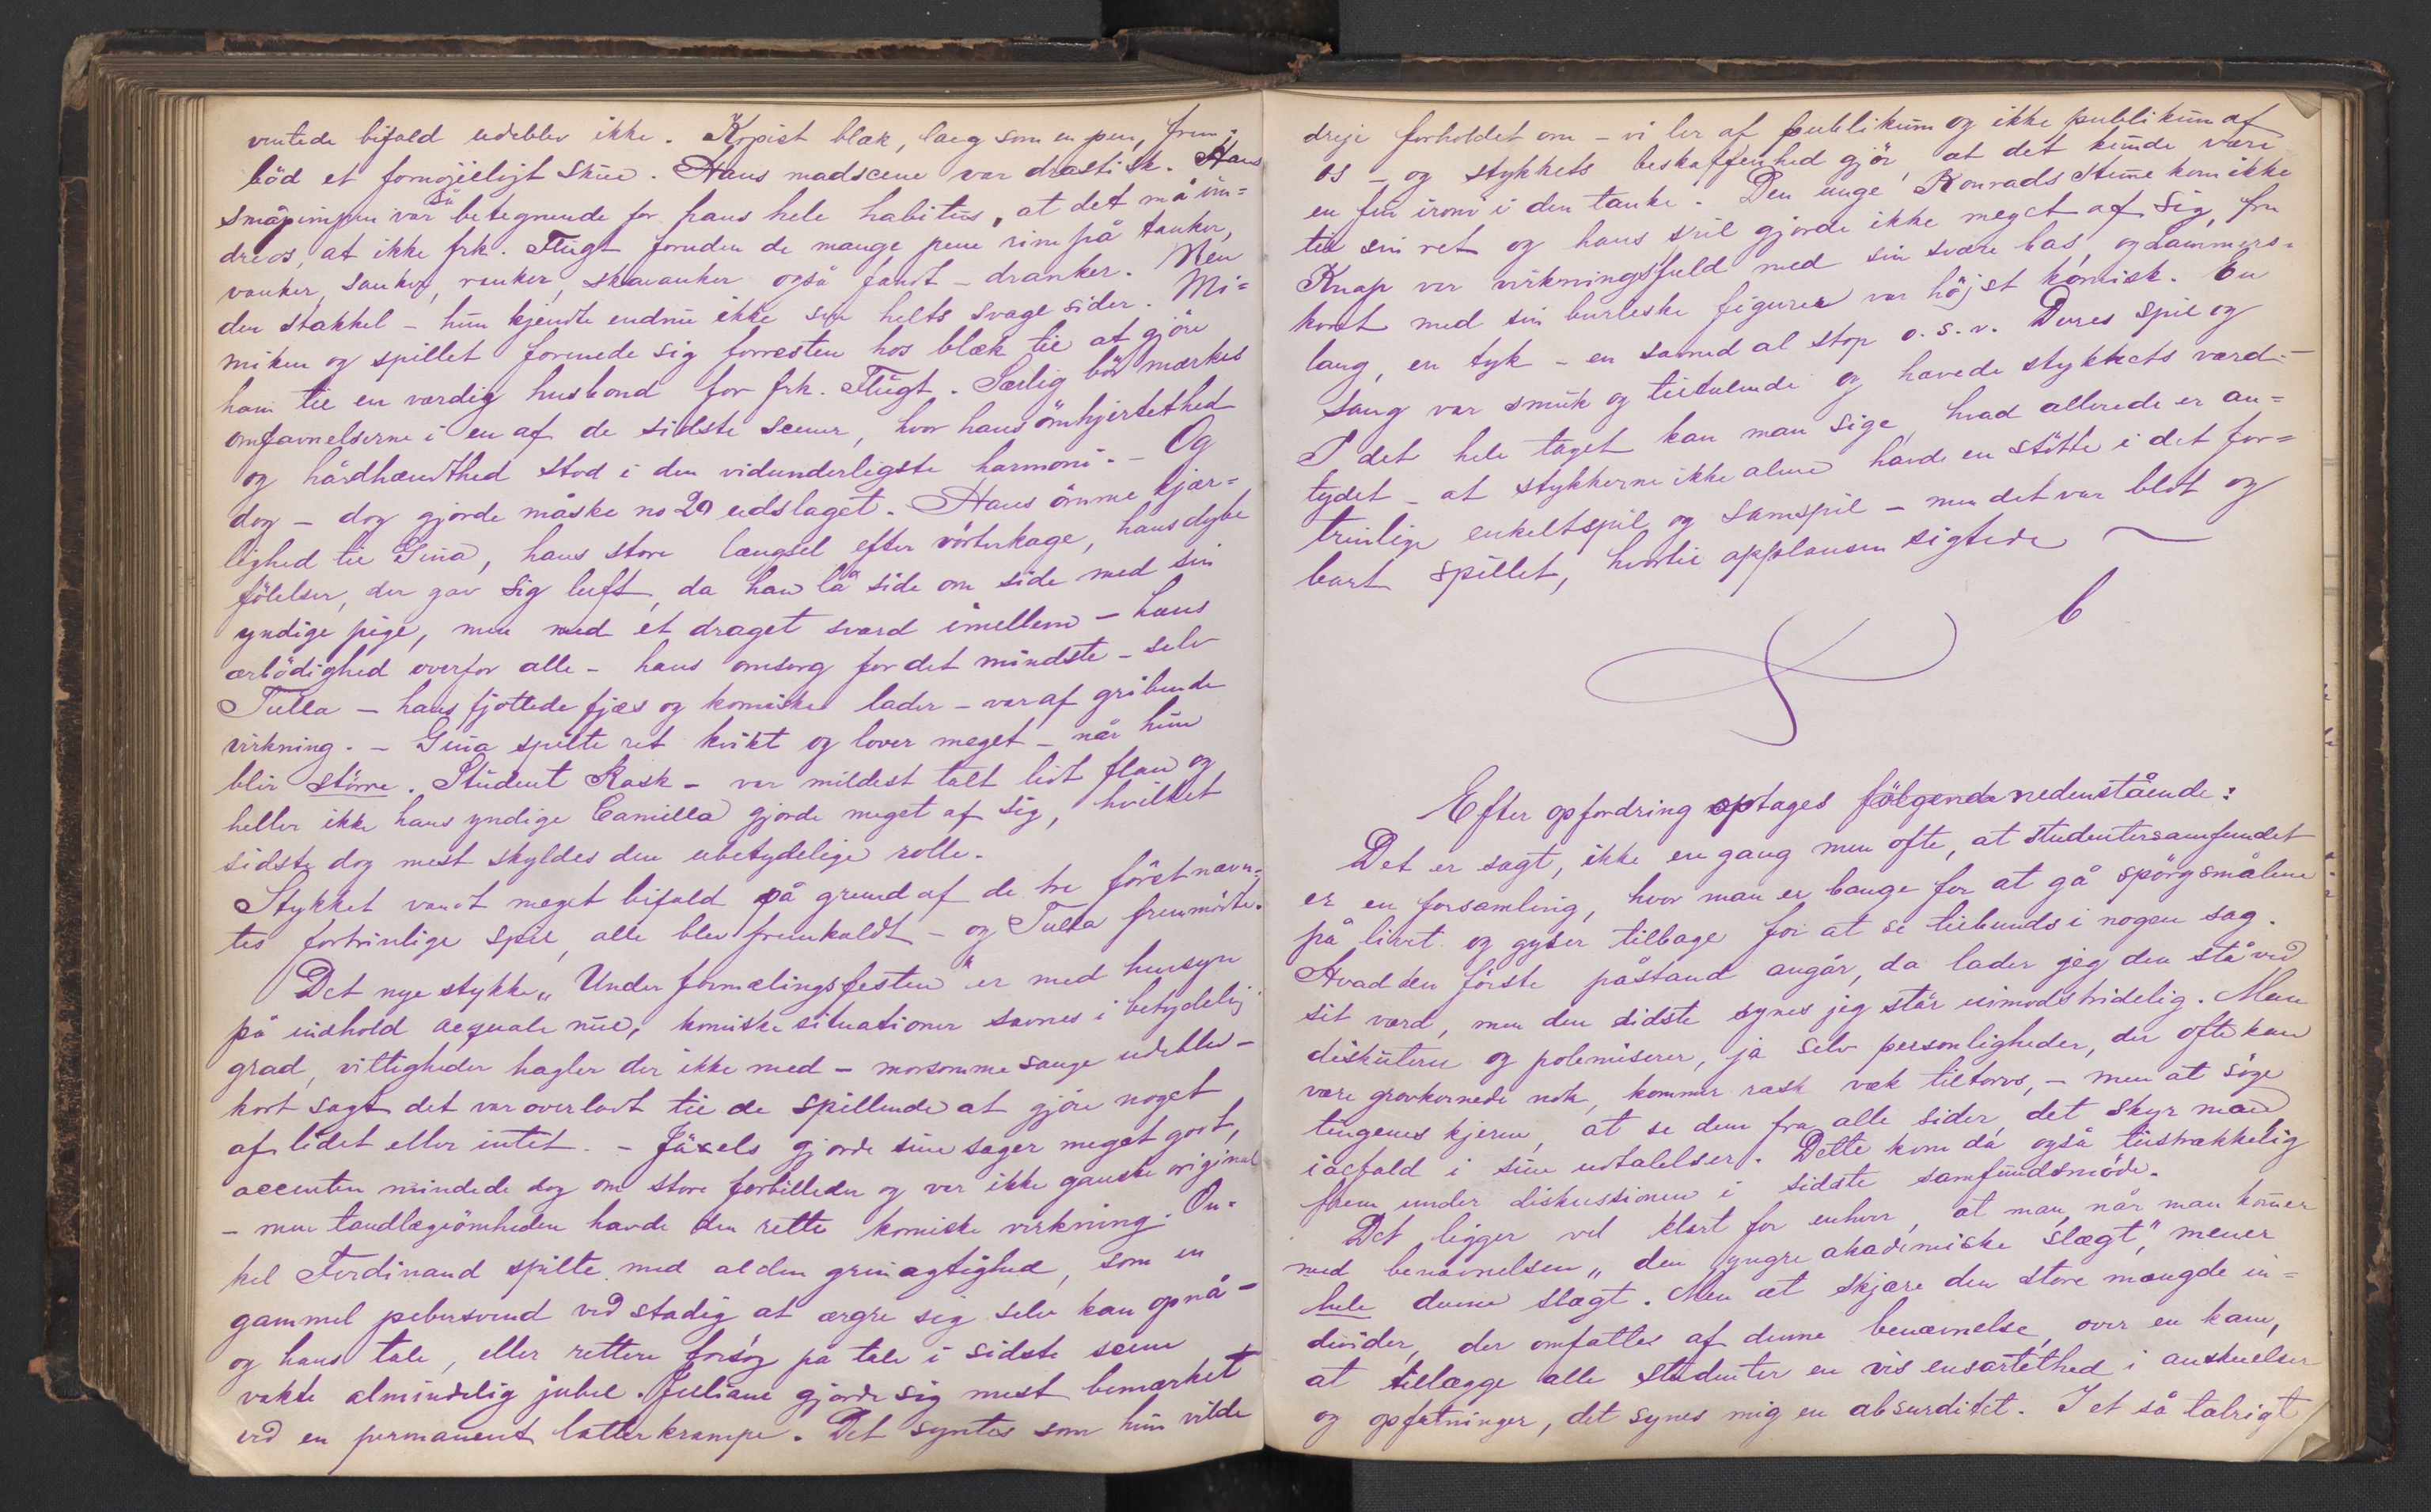 ventede bifald udeblev ikke. Kopist blæk, lang som en pen, frem-
böd et fornöieligt skue. Hans madscene var drastisk. Hans
småpimpen var så betegnende for hans hele habitus, at det må un=
dre os, at ikke frk. Flugt foruden de mange pene rim på tanker,
vanker, sanker, ranker, skavanker også fandt - dranker. Men
den stakkel - hun kjendte endnu ikke sin helts svage sider. Mi=
miken og spillet forenede sig forresten hos blæk til at gjöre
ham til en værdig husbond for frk. Flugt. Særlig bör mærkes
omfavnelserne i en af de sidste scener, hvor hans ömhjertethed
og hårdhændthed stod i den vidunderligste harmoni. - Og
dog - dog gjorde måske no 20 udslaget. Hans ömme kjær=
lighed til Gina, hans store længsel efter vörterkage, hans dybe
fölelser, der gav sig luft, da han lå side om side med sin
yndige pige, men med et draget sværd imellem - hans
ærbödighed overfor alle - hans omsorg for det mindste - selv
Tulla - hans fjottede fjæs og komiske lader - var af gribende
virkning. - Gina spilte ret kvikt og lover meget - når hun
blir större. Student Rask - var mildest talt lidt flau og
heller ikke hans yndige Camilla gjorde meget af sig, hvilket
sidste dog mest skyldes den ubetydelige rolle.
Stykket vandt meget bifald på grund af de tre förstnævn=
tes fortrinlige spil, alle blev fremkaldt - og Tulla fremmödte.
Det nye stykke „Under formælingsfesten" er med hensyn
på indhold æquale nul, komiske situationer savnes i betydelig
grad, vittigheder hagler der ikke med - morsomme sange udeblev -
kort sagt det var overladt til de spillende at gjöre noget
af lidet eller intet. - Juxels gjorde sine sager meget godt,
accenten mindede dog om store forbilleder og var ikke ganske original
- men tandlægeömheden havde den rette komiske virkning. On=
kel Ferdinand spilte med al den grinagtighed, som en
gammel pebersvend ved stadig at ærgre sig selv kan opnå -
og hans tale, eller rettere forsög på tale i sidste scene
vakte almindelig jubel. Juliane gjorde sig mest bemærket
ved en permanent latterkrampe. Det syntes som hun vilde
dreje forholdet om - vi ler af publikum og ikke publikum af
os - og stykkets beskaffenhed gjör, at det kunde være
en fin ironi i den tanke. Den unge Konrads stemme kom ikke
til sin ret og hans spil gjorde ikke meget af sig, fru
Knap var virkningsfuld med sin svære bas, og Lammers-
kort med sin burleske figurer var höjst komisk. En
lang, en tyk - en samed al stop o. s. v. Deres spil og
sang var smuk og tiltalende og hævede stykkets værd. -
I det hele taget kan man sige, hvad allerede er an=
tydet - at stykkerne ikke alene havde en stötte i det for=
trinlige enkeltspil og samspil - men det var blot og
bart spillet, hvortil applausen sigtede
b
Efter opfordring optages fölgende nedenstående:
Det er sagt, ikke en gang men ofte, at studentersamfundet
er en forsamling, hvor man er bange for at gå spörgsmålene
på livet og gyser tilbage for at se tilbunds i nogen sag.
Hvad den förste påstand angår, da lader jeg den stå ved
sit værd, men den sidste synes jeg står uimodstridelig. Man
diskuterer og polemiserer, ja selv personligheder, der ofte kan
være grovkornede nok, kommer rask væk tiltorvs, - men at söge
tingenes kjerne, at se dem fra alle sider, det skyr man
iaefald i sine udtalelser. Dette kom da også tilstrækkelig
frem under diskussionen i sidste samfundsmöde.
Det ligger vel klart for enhver, at man, når man kom̄er
med benævnelsen „den yngre akademiske slægt," mener
hele denne slægt. Men at skjære den store mængde in=
divider, der omfattes af denne benævnelse, over en kam,
at tillægge alle studenter en vis ensartethed i anskuelser
og opfatninger, det synes mig en absurditet. I et så talrigt